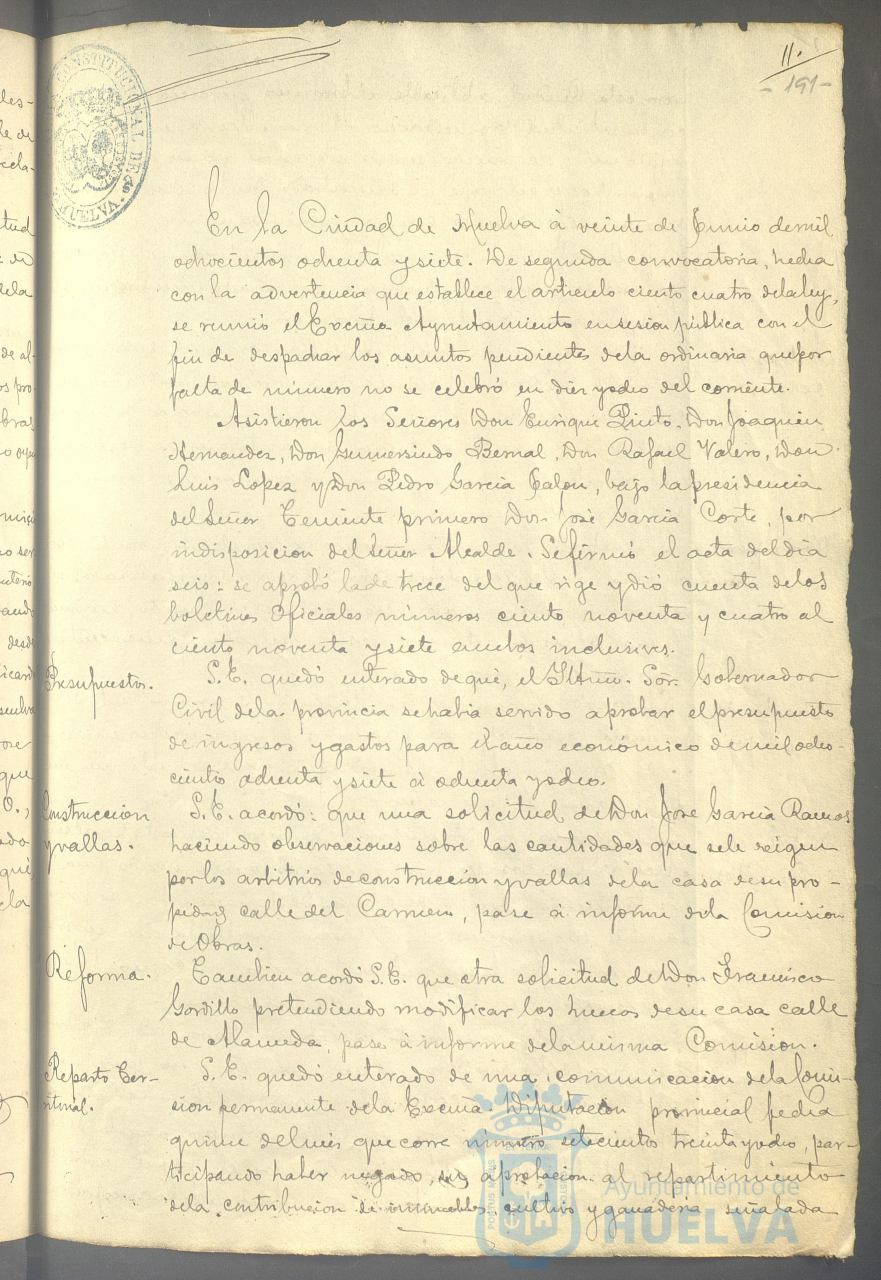 11.
- 191 -
En la Ciudad de Huelva á veinte de Junio de mil
ochocientos ochenta y siete. De segunda convocatoria, hecha
con la advertencia que establece el articulo ciento cuatro de la ley,
se reunió el Excmo. Ayuntamiento en sesion pública con el
fin de despachar los asuntos pendientes de la ordinaria que por
falta de número no se celebró en diez y ocho del corriente.
Asistieron los Señores Don Enrique Pinto, Don Joaquin
Hernandez, Don Gumersindo Bernal, Don Rafael Valero, Don
Luis Lopez y Don Pedro Garcia Jalon, bajo la presidencia
del Señor Teniente primero Don José Garcia Corte, por
indisposicion del Señor Alcalde. Se firmó el acta del dia
seis: se aprobó la de trece del que rige y dió cuenta de los
boletines Oficiales números ciento noventa y cuatro al
ciento noventa y siete ambos inclusives.
Presupuestos.
S.E. quedó enterado de que, el Iltmo. Sor. Gobernador
Civil de la provincia se habia servido aprobar el presupuesto
de ingresos y gastos para el año económico de mil ocho-
ciento ochenta y siete á ochenta y ocho.
Construccion
y vallas.
S.E. acordó: que una solicitud de Don José Garcia Ramos
haciendo observaciones sobre las cantidades que se le exigen
por los arbitrios de construccion y vallas de la casa de su pro-
piedad calle del Carmen, pase á informe de la Comision
de Obras.
Reforma.
Tambien acordó S.E. que otra solicitud de Don Francisco
Gordillo pretendiendo modificar los huecos de su casa calle
de Alameda, pase á informe de la misma Comision.
Reparto Ter-
ritorial.
S.E. quedó enterado de una comunicacion de la Comi-
sion permanente de la Excma. Diputacion provincial fecha
quince del mes que corre número setecientos treinta y ocho, par-
ticipando haber negado su aprobacion al repartimiento
de la contribucion de inmuebles, cultivo y ganaderia señalada
Ayuntamiento de
HUELVA